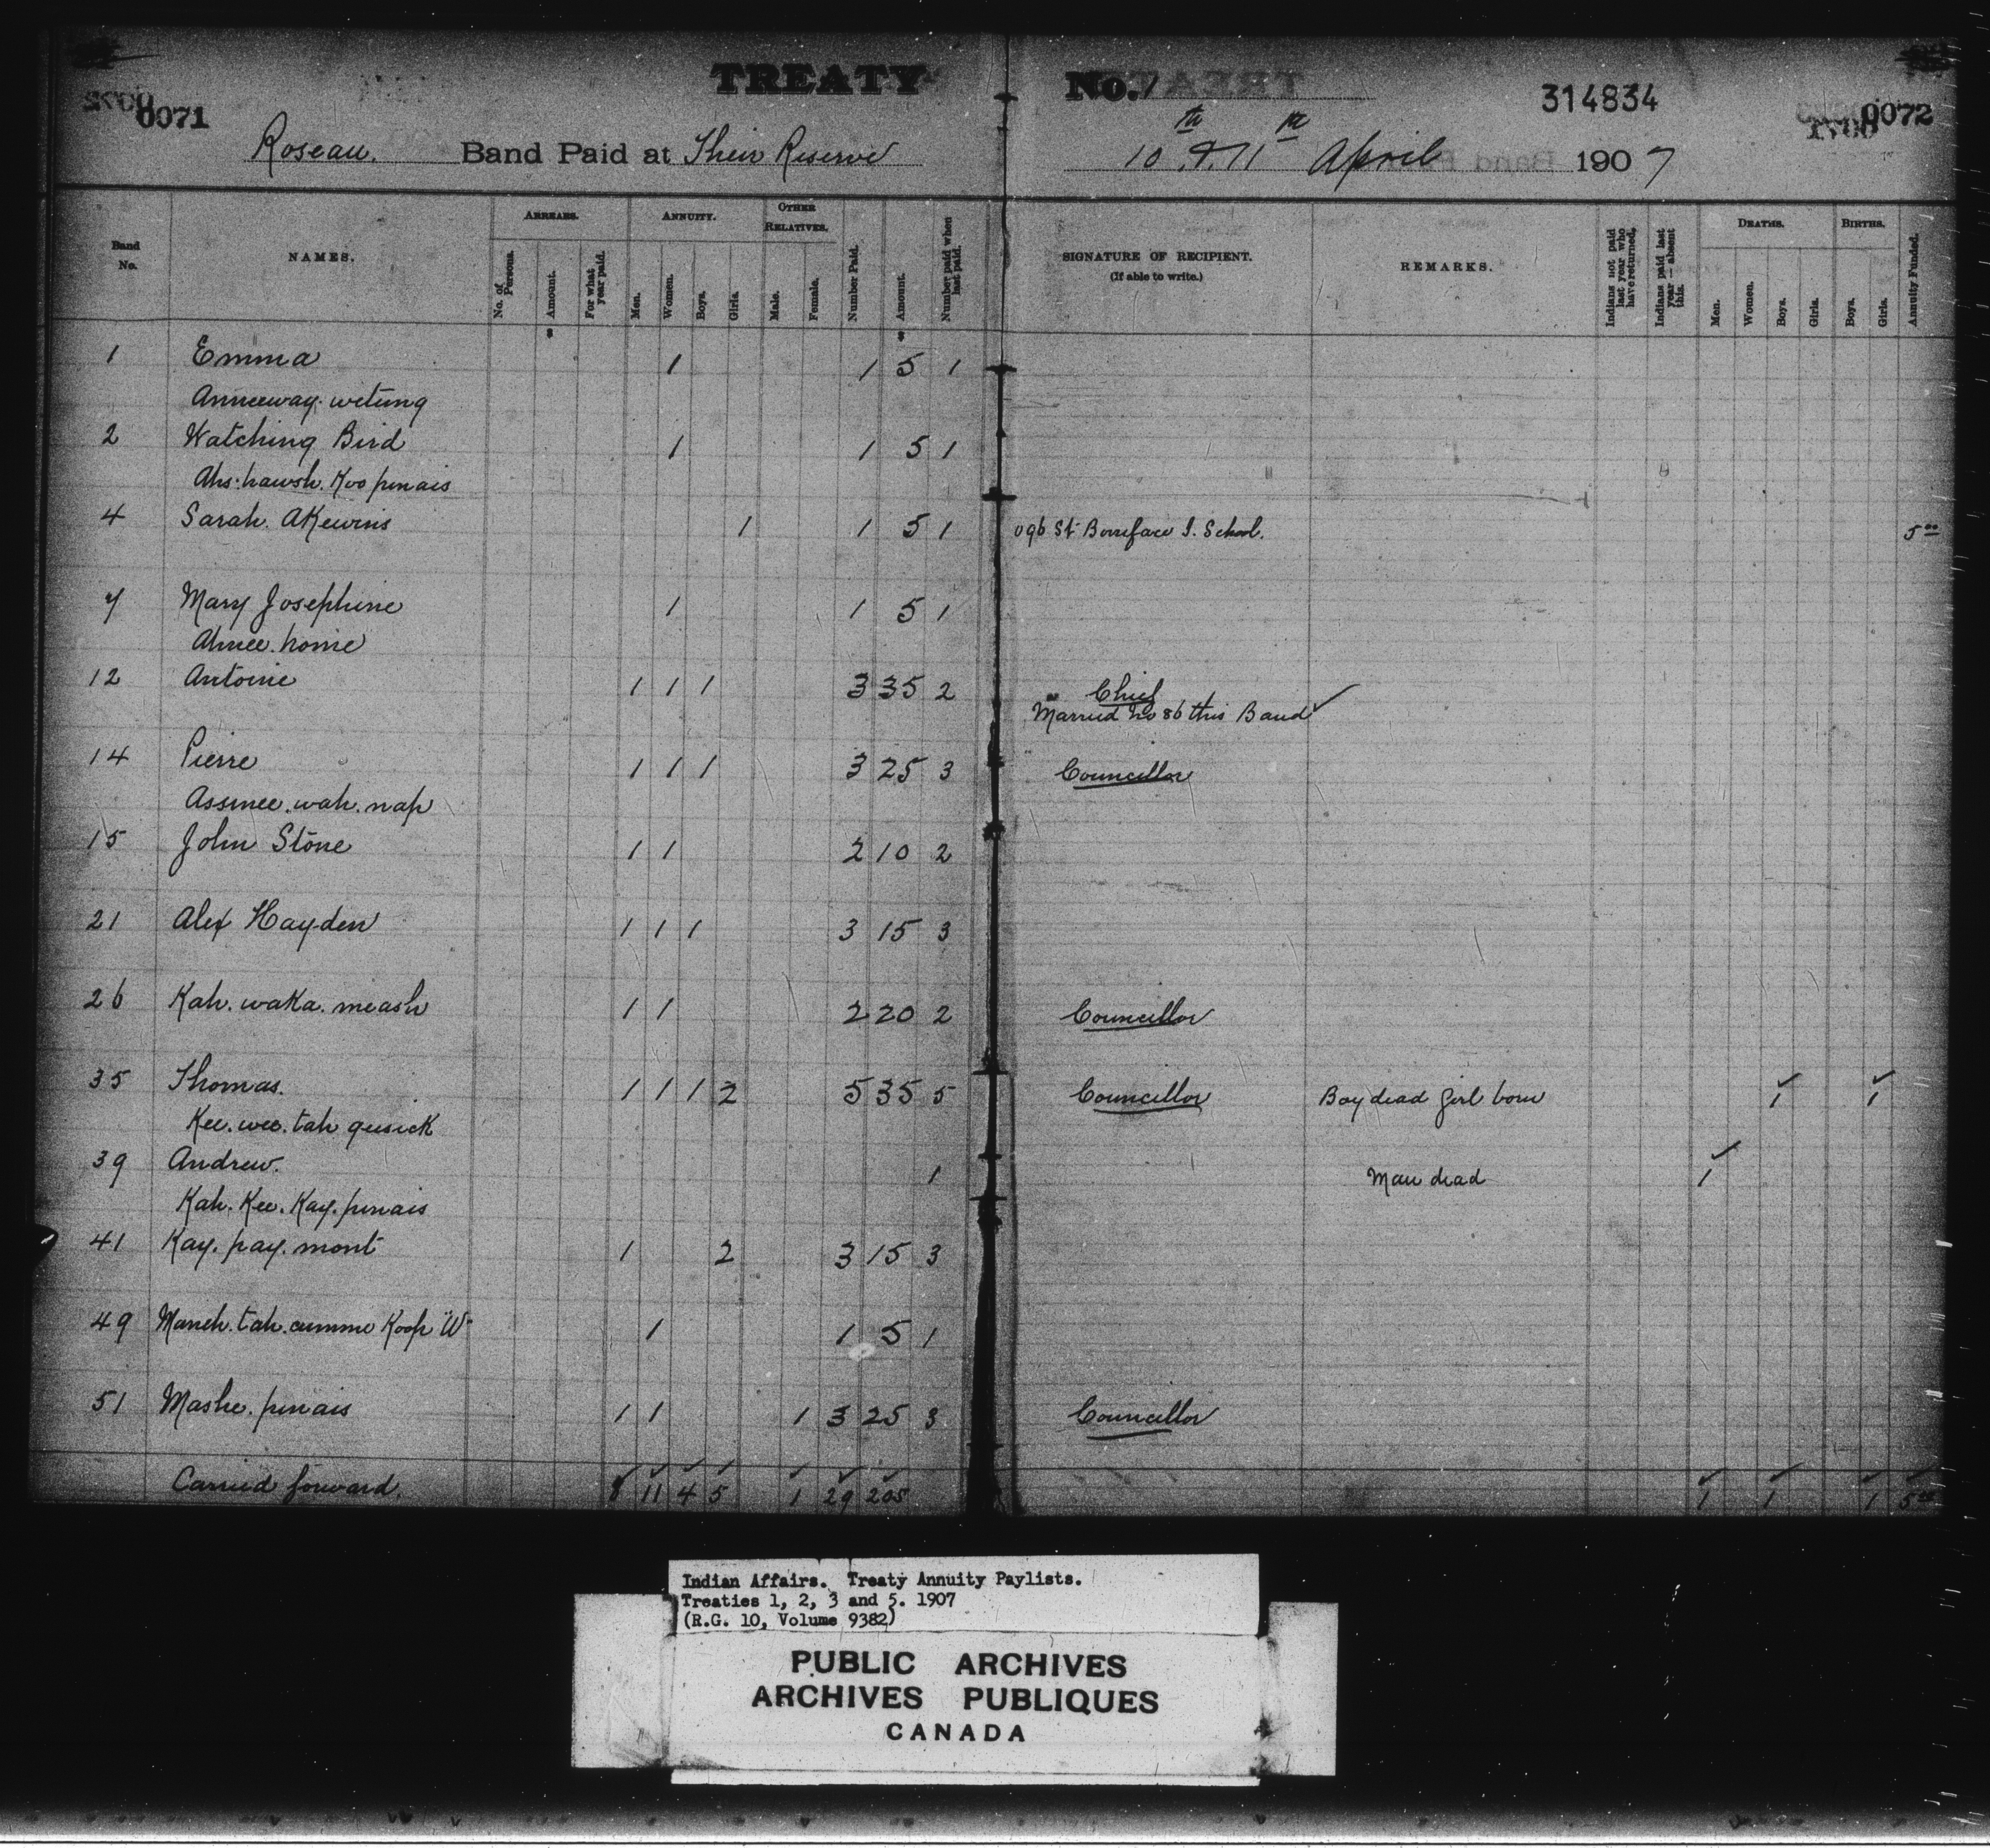 TREATY No. 1
0071
314834
0072
Roseau. Band Paid at Their Reserve
10th & 11th April 1907
Band No.
NAMES.
ARREARS.
No. of Persons.
Amount.
For what year paid.
ANNUITY.
Men.
Women.
Boys.
Girls.
OTHER RELATIVES.
Male.
Female.
Number Paid.
Amount.
Number paid when last paid.
SIGNATURE OF RECIPIENT.
(If able to write.)
REMARKS.
Indians not paid last year who have returned.
Indians paid last year — absent this.
DEATHS.
Men.
Women.
Boys.
Girls.
BIRTHS.
Boys.
Girls.
Annuity Funded.
1 Emma 1 1 5 1
Anneeway. wetung
2 Watching Bird 1 1 5 1
Ahs. hawsh. Koo pinais
4 Sarah. AKewins 1 1 5 1 096 St Boniface I. School. 5 00
7 Mary Josephine 1 1 5 1
Ahnee. home
12 Antoine 1 1 1 3 35 2 Chief
Married No 86 this Band ✓
14 Pierre 1 1 1 3 25 3 Councillor
Assinee. wah. nap
15 John Stone 1 1 2 10 2
21 Alex Hayden 1 1 1 3 15 3
26 Kah. waKa. meash 1 1 2 20 2 Councillor
35 Thomas. 1 1 1 2 5 35 5 Councillor Boy dead Girl born 1 1
Kee. wee. tah gusick
39 Andrew. 1 Man dead 1
Kah. Kee. Kay. pinais
41 Kay. pay. mont 1 2 3 15 3
49 Maneh. tah. cumme Koop W 1 1 5 1
51 Mashe. pinais 1 1 1 3 25 3 Councillor
Carried forward. 8 11 4 5 1 29 205 1 1 1 5 00
Indian Affairs. Treaty Annuity Paylists.
Treaties 1, 2, 3 and 5. 1907
(R.G. 10, Volume 9382)
PUBLIC ARCHIVES
ARCHIVES PUBLIQUES
CANADA